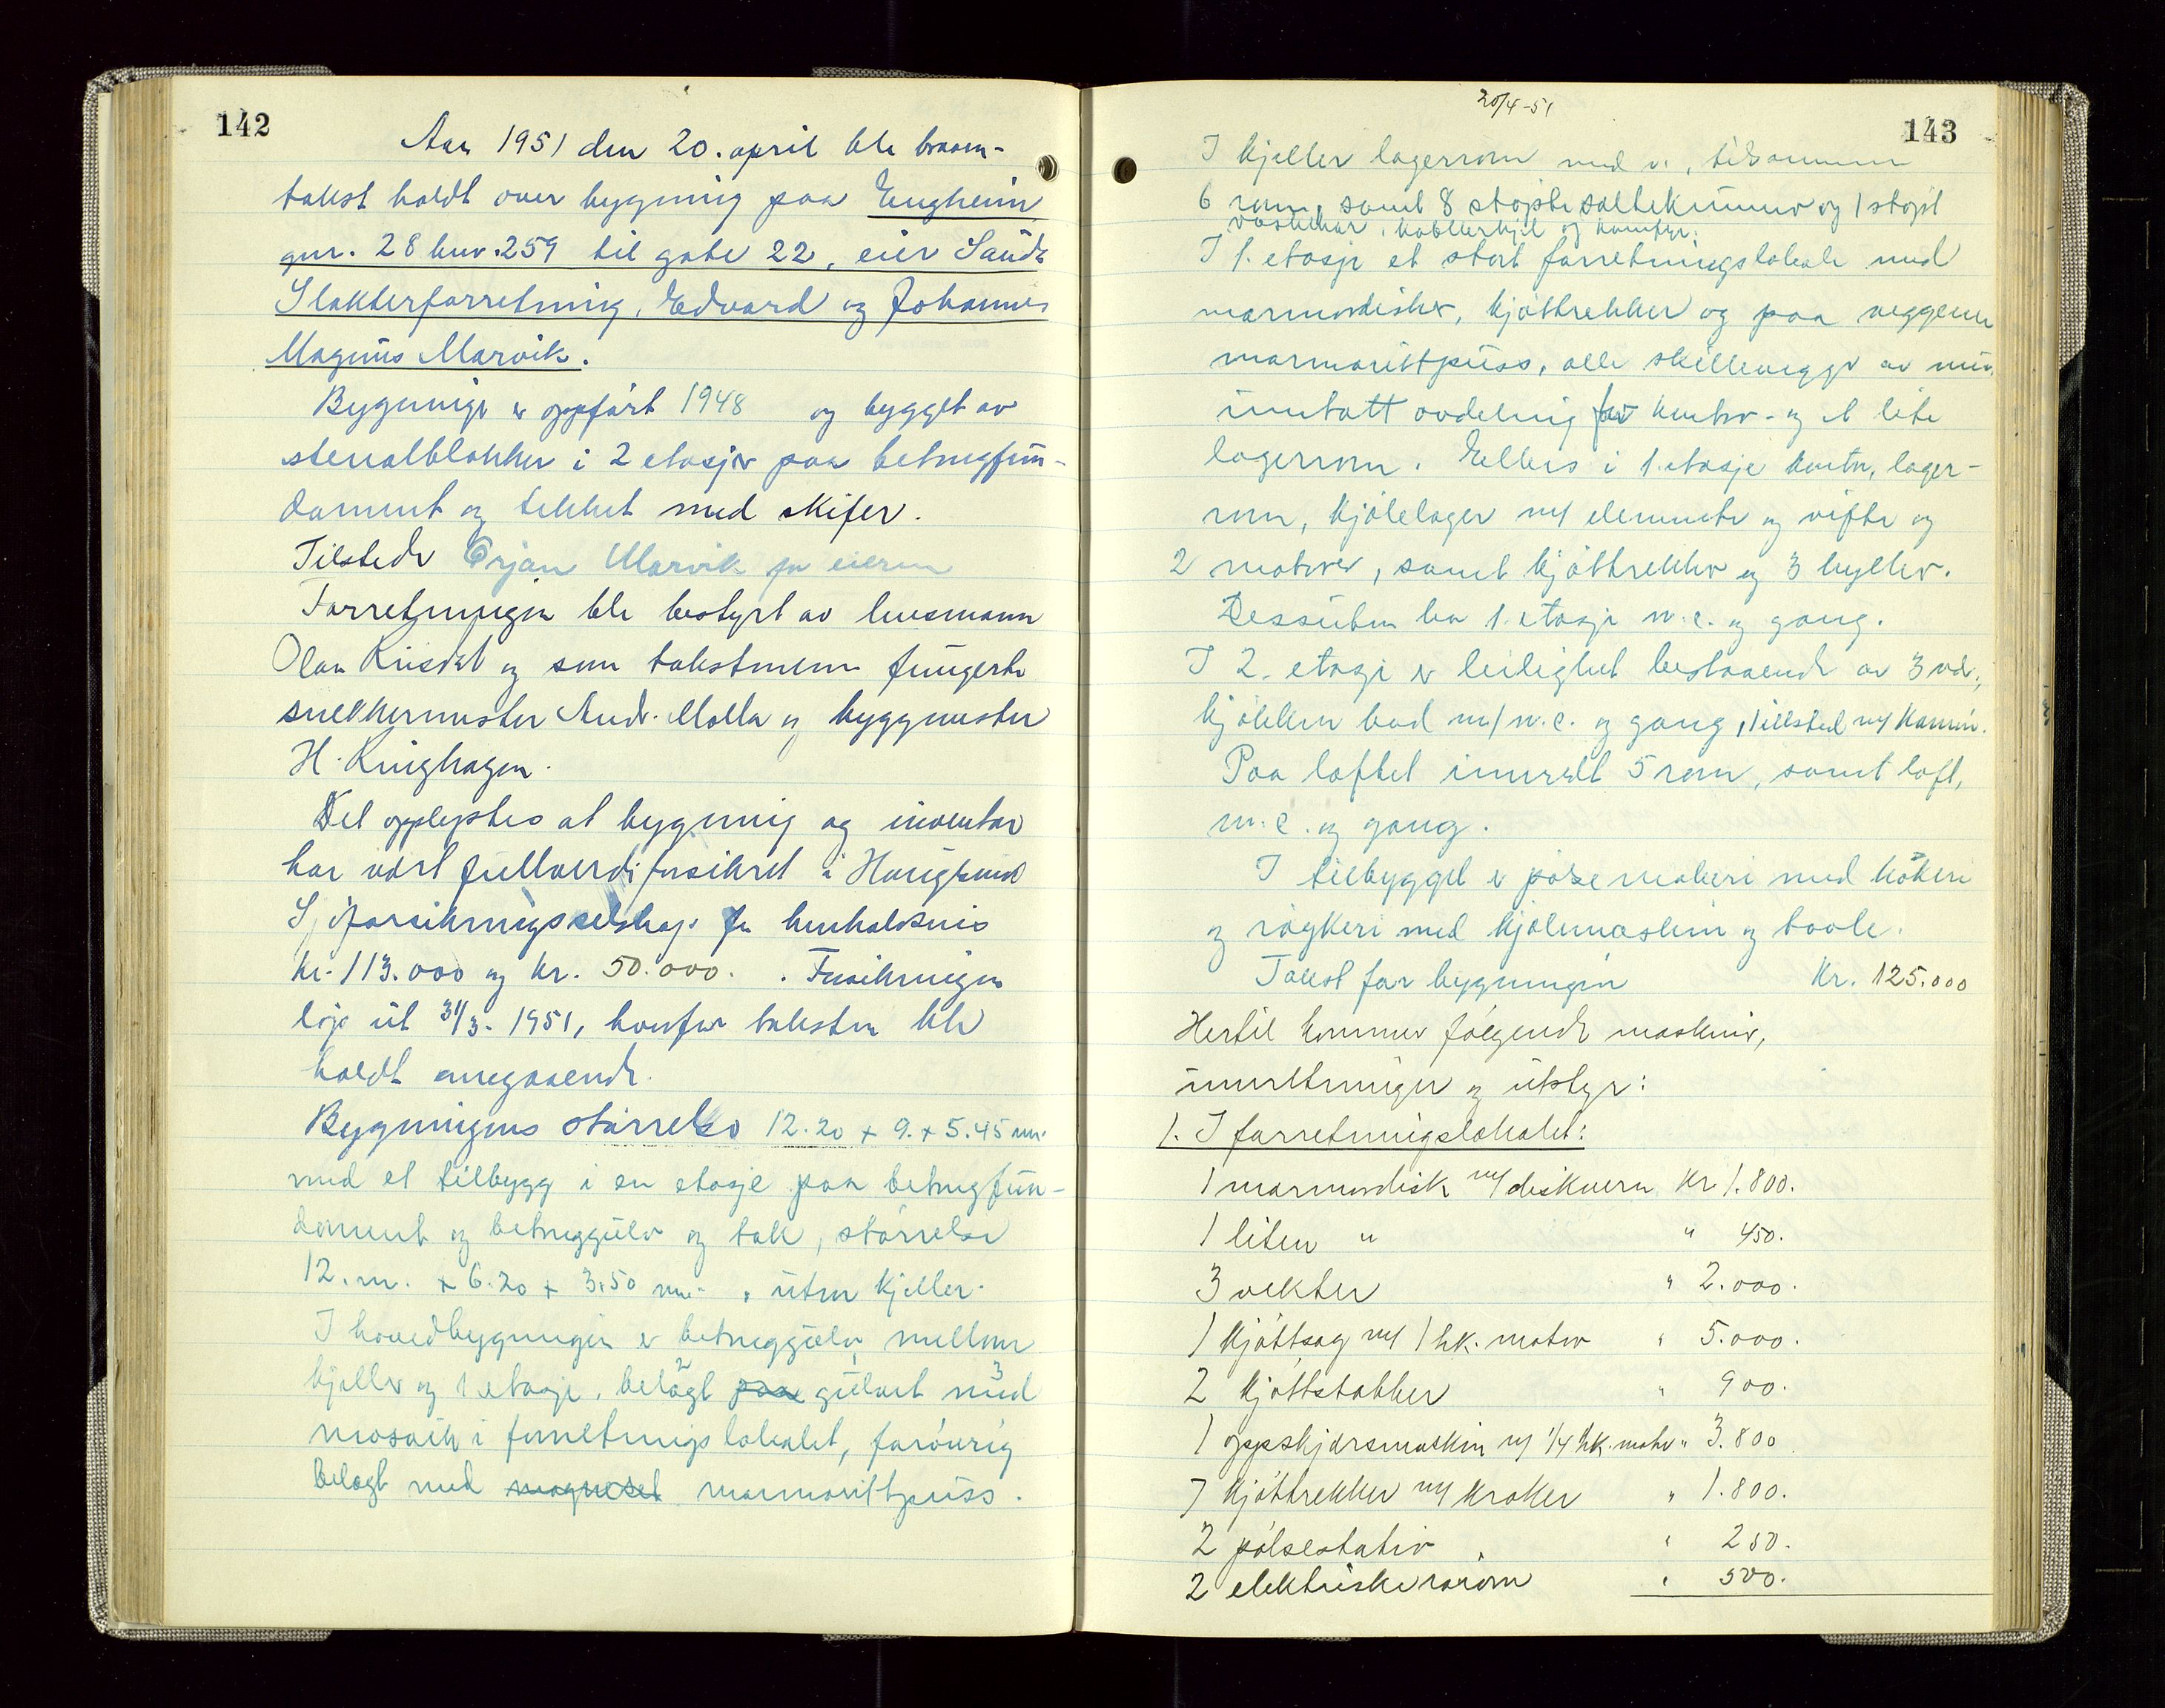 142
Aar 1951 den 20. april ble brann-
takst holdt over bygning paa Engheim
gnr. 28 bnr. 259 til gate 22, eier Sauda
Slakterforretning, Edvard og Johannes
Magnus Marvik.
Bygningen er oppført 1948 og bygget av
stenalblokker i 2 etasjer paa betongfun-
dament og tekket med skifer.
Tilstede Ørjan Marvik for eieren
Forretningen ble bestyrt av lensmann
Olav og som takstmenn fungerte
snekkermester Andr. Molla og byggmester
H. Ringhagen.
Det opplystes at bygning og inventar
har vært fullverdiforsikret i Haugesund
Sjøforsikringsselskap for henholdsvis
kr. 113.000 og kr. 50.000. . Forsikringen
løp ut 31/3. 1951, hvorfor taksten ble
holdt omgaaende.
Bygningens størrelse 12.20 + 9. + 5.45 m.
med et tilbygg i en etasje paa betongfun-
dament og betonggulv og tak, størrelse
12. m. + 6.20 + 3.50 m. , uten kjeller.
I hovedbygningen er betonggulv mellom
kjeller og 1 etasje, belagt paa gulvet med
mosaik i forretningslokalet, forøvrig
belagt med magnesit marmorittpuss.
20/4-51
143
I kjeller lagerrom med v. , tilsammen
6 rom, samt 8 støpte saltekummer og 1 støpt
vaskekar, og komfyr.
I 1. etasje et stort forretningslokale med
marmordisker, kjøttrekker og paa veggene
marmorittpuss, alle skillevegger av mur
inntatt avdeling for kontor- og et lite
lagerrom. Ellers i 1. etasje kontor, lager-
rom, kjølelager m/ elementer og vifte og
2 motorer, samt kjøttrekker og 3 hyller.
Dessuten har 1. etasje w.c. og gang.
I 2. etasje er leilighet bestaaende av 3 vær.,
kjøkken bad m/ w.c. og gang, ildsted m/ kamin.
Paa loftet innredt 5 rom, samt loft,
w.c. og gang.
I tilbygget er pølsemakeri med kokeri
og røgkeri med kjølemaskin og
Takst for bygningen Kr. 125.000
Hertil kommer følgende maskiner,
innretninger og utstyr:
1. I forretningslokalet:
1 marmordisk m/ diskvern Kr. 1.800.
1 liten " " 450.
3 vekter " 2.000.
1 kjøttsag m/ 1 hk. motor " 5.000.
2 kjøttstabber " 900.
1 oppskjærsmaskin m/ 1/4 hk. motor " 3.800
7 kjøttrekker m/ kroker " 1.800.
2 pølsestativ " 250.
2 elektriske " 500.